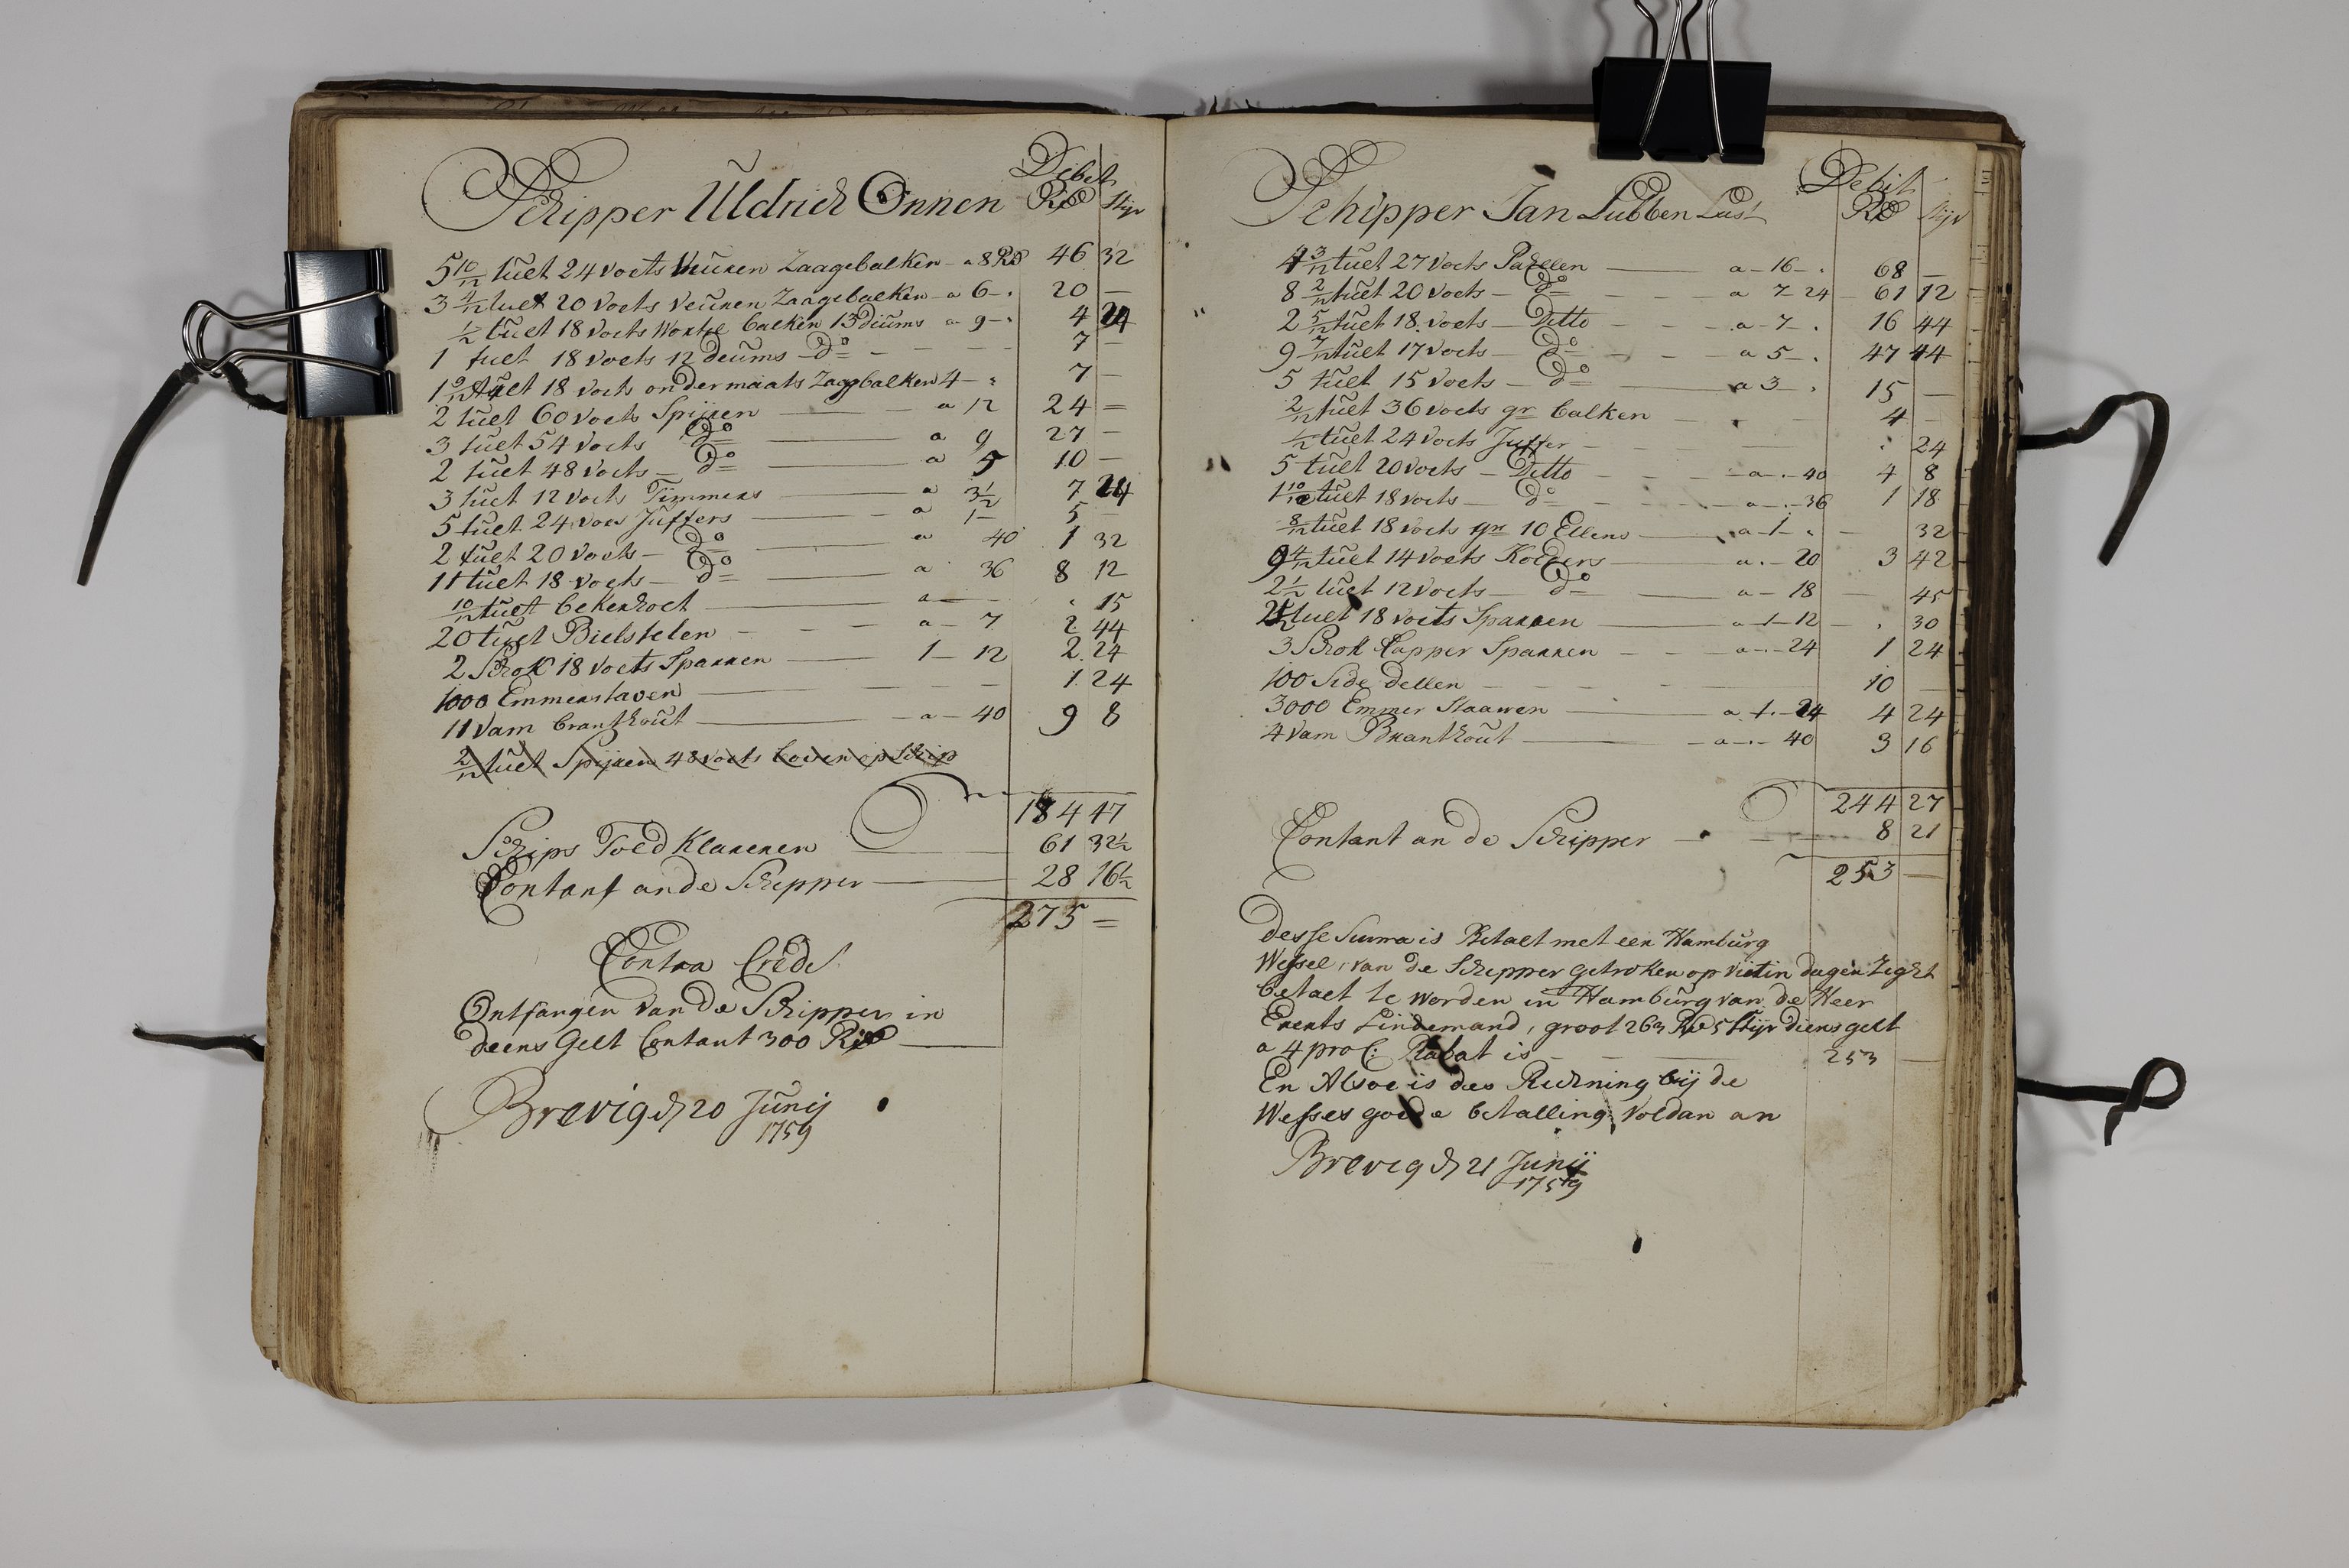 Debet
Schipper Uldrich Onnen Rd Stijv
5 10/12 tuet 24 voets Vuuren Zaagebalken - a 8 Rd 46 32
3 4/12 tuet 20 voets Veuren Zaagebalken - a 6 - . 20 —
1/2 tuet 18 voets Wortle balken 13 diums a 9 - . 4 24
1 tuet 18 voets 12 deums - do - - - - 7 —
1 9/12 tuet 18 voets ondermaats Zaagbalken 4 - . 7 —
2 tuet 60 voets Spijren — a 12 24 =
3 tuet 54 voets do — a 9 27 —
2 tuet 48 voets - do — a 5 10 —
3 tuet 12 voets Timmers — a 3 1/2 7 24
5 tuet 24 voes Juffers — a 1 - 5 —
2 tuet 20 voets - do — a 40 1 32
11 tuet 18 voets - do — a 36 8 12
10/12 tuet bekenhoet — a — . 15
20 tuet Bielstelen - - - a - 7 2 44
2 Schok 18 voets Sparren — 1 - 12 2 24
1000 Emmerstaven — - - - 1 24
11 Vam branthout — - a - 40 9 8
2/12 tuet Spijren 48 voets boven op Schip
184 47
Schips Toed Klareren — 61 32 1/2
Contant ande Schipper — 28 16 1/2
275 =
Contra Credt
Ontfangen van de Schipper in
deens Gelt Contant 300 Rd —
Brevig d 20 Junij
1759
Debit
Schipper Jan Lubben Last Rd Stijv
4 3/12 tuet 27 voets Parllen — a - 16 - . 68 —
8 2/12 tuet 20 voets - do - - - a 7 24 - 61 12
2 5/12 tuet 18 voets - Ditto - - - a - 7 . 16 44
9 7/12 tuet 17 voets - do - - - a 5 - . 47 44
5 tuet 15 voets - do — a 3 . 15 —
2/12 tuet 36 voets gr balken - - . 4 —
1/2 tuet 24 voets Juffer - - - . 24
5 tuet 20 voets - Ditto - - - a . - 40 4 8
1 10/12 tuet 18 voets - do - - - a . - 36 1 18
8/12 tuet 18 voets gr 10 Ellens — a - 1 - . — 32
9 4/12 tuet 14 voets Koepers — a . - 20 3 42
2 1/2 tuet 12 voets - do — a - 18 — 45
tuet 18 voets Sparren — a 1 - 12 — . 30
3 Schok Capper Sparren - - - a . - 24 1 24
100 Side dellen - - - — 10 —
3000 Emmer Staawen — a 1 . - 24 4 24
4 Vam Branthout — - a . - 40 3 16
244 27
Contant an de Schipper - . - 8 21
253 —
Desse Suma is Betaelt met een Hamburg
Wessel, van de Schipper getroken op Viertin dagen Zeght
betaelt te worden in Hamburg van de Heer
Everts Lindemand, groot 263 Rd 5 Stijv diens gelt
a 4 pro C: Rabat is — 253 —
En Alsoe is des Rechning bij de
Wessels goede betalling Voldan an
Brevig d 21 Junij
1759